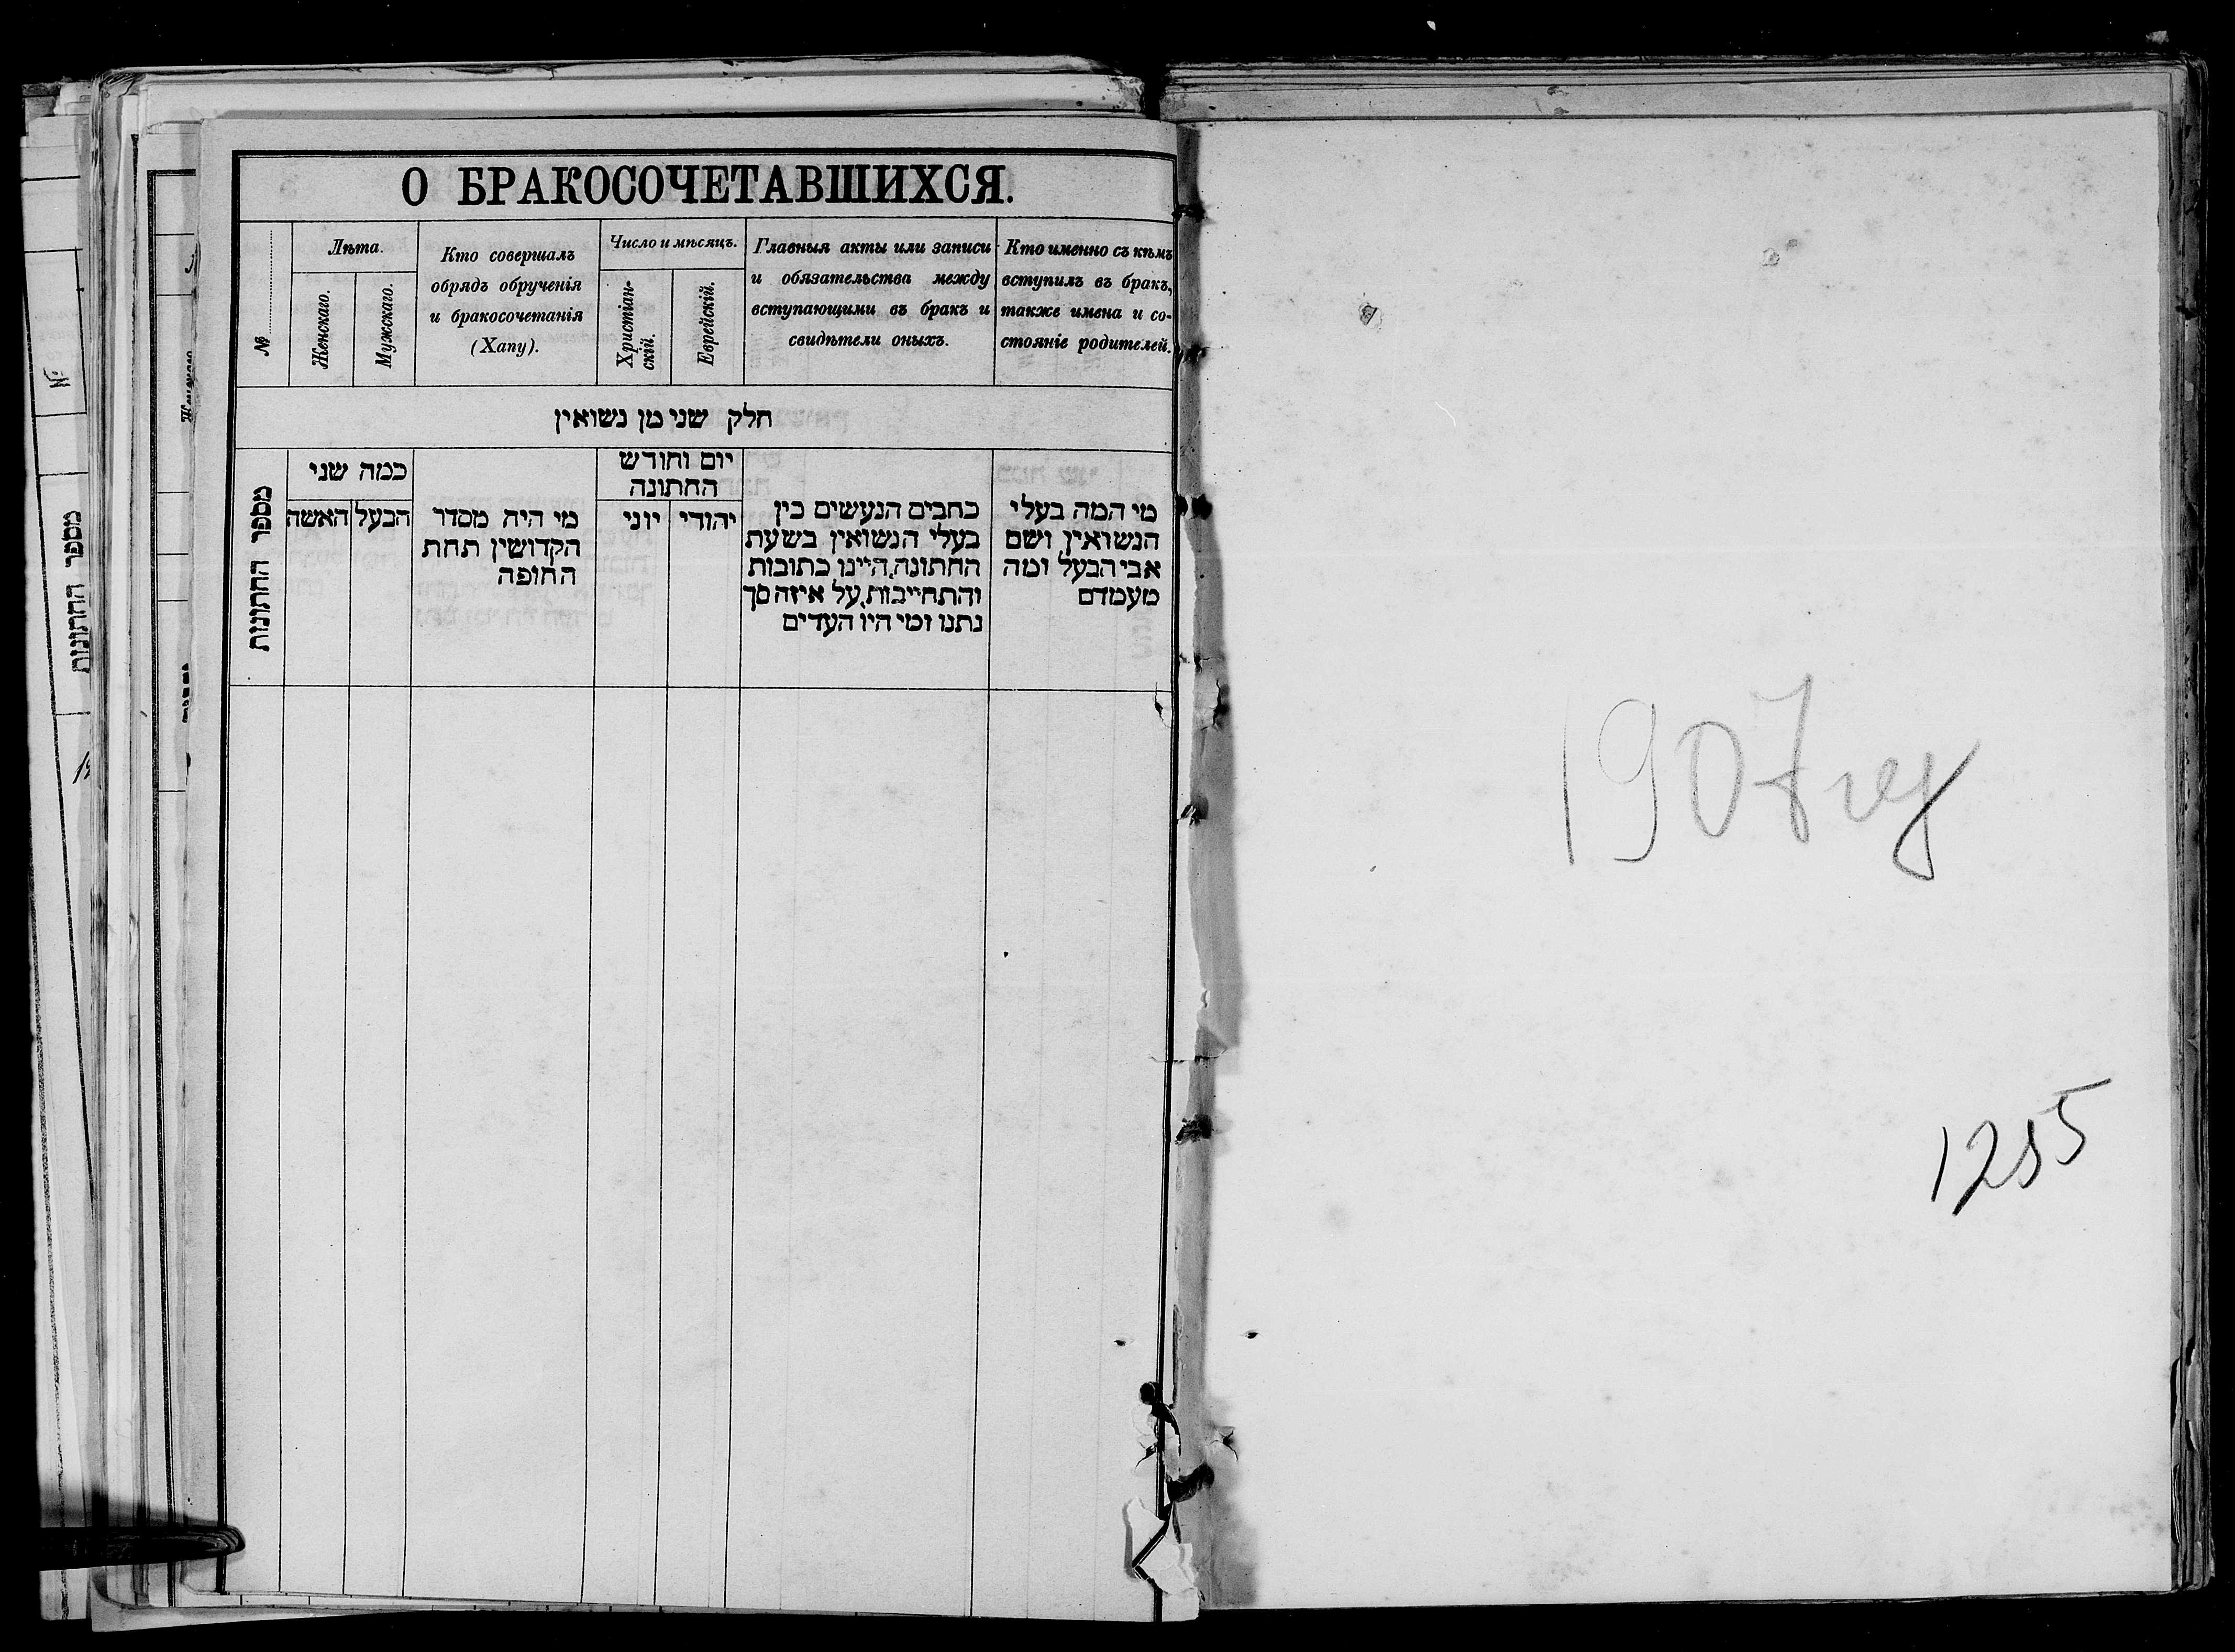 О БРАКОСОЧЕТАВШИХСЯ.
№
Лѣта.
Женскаго.
Мужскаго.
Кто совершалъ
обрядъ обрученія
и бракосочетанія
(Хапу).
Число и мѣсяцъ.
Христіан-
скій.
Еврейскій.
Главныя акты или записи
и обязательства между
вступающими въ бракъ и
свидѣтели оныхъ.
Кто именно съ кѣмъ
вступилъ въ бракъ,
также имена и со-
стояніе родителей.
חלק שני מן נשואין
מספר החתונות
כמה שני
האשה
הבעל
מי היה מסדר
הקדושין תחת
החופה
יום וחודש
החתונה
יוני
יהודי
כתבים הנעשים בין
בעלי הנשואין בשעת
החתונה, היינו כתובות
והתחייבות, על איזה סך
נתנו ומי היו העדים
מי המה בעלי
הנשואין ושם
אבי הבעל ומה
מעמדם
№
מספר החתונות
1907
1255